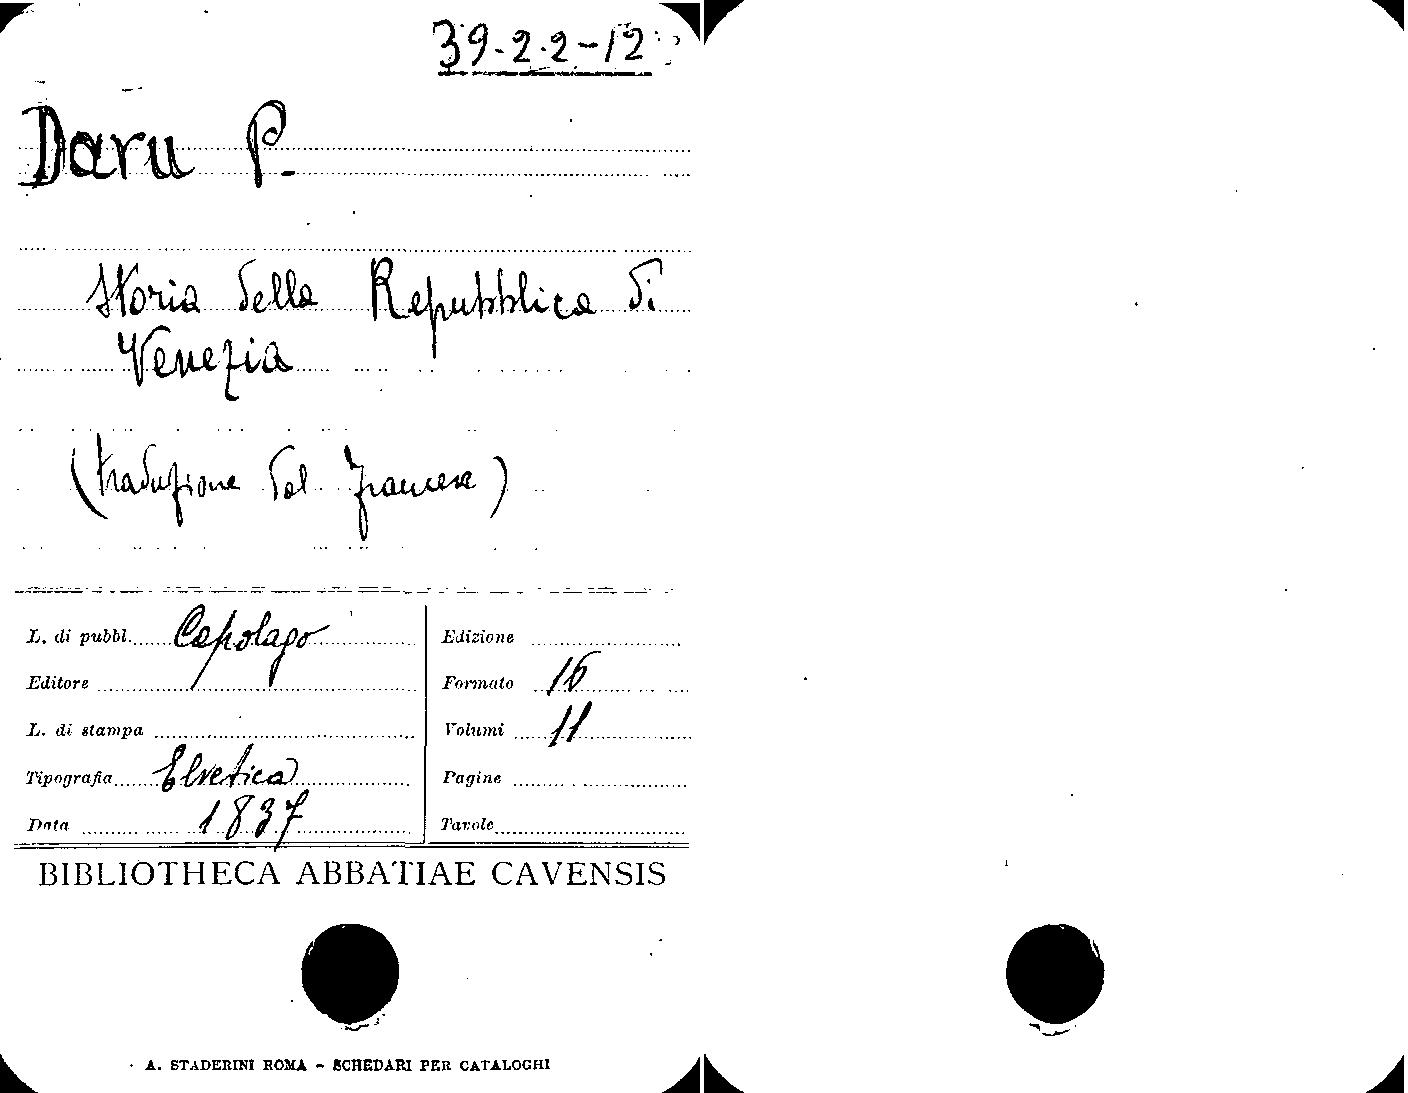 39-2-2-12
Daru P.
Storia della Repubblica di
Venezia
(traduzione dal francese)
L. di pubbl. Capolago
Editore
L. di stampa
Tipografia Elvetica
Data 1837
Edizione
Formato 16
Volumi 11
Pagine
Tavole
BIBLIOTHECA ABBATIAE CAVENSIS
A. STADERINI ROMA - SCHEDARI PER CATALOGHI